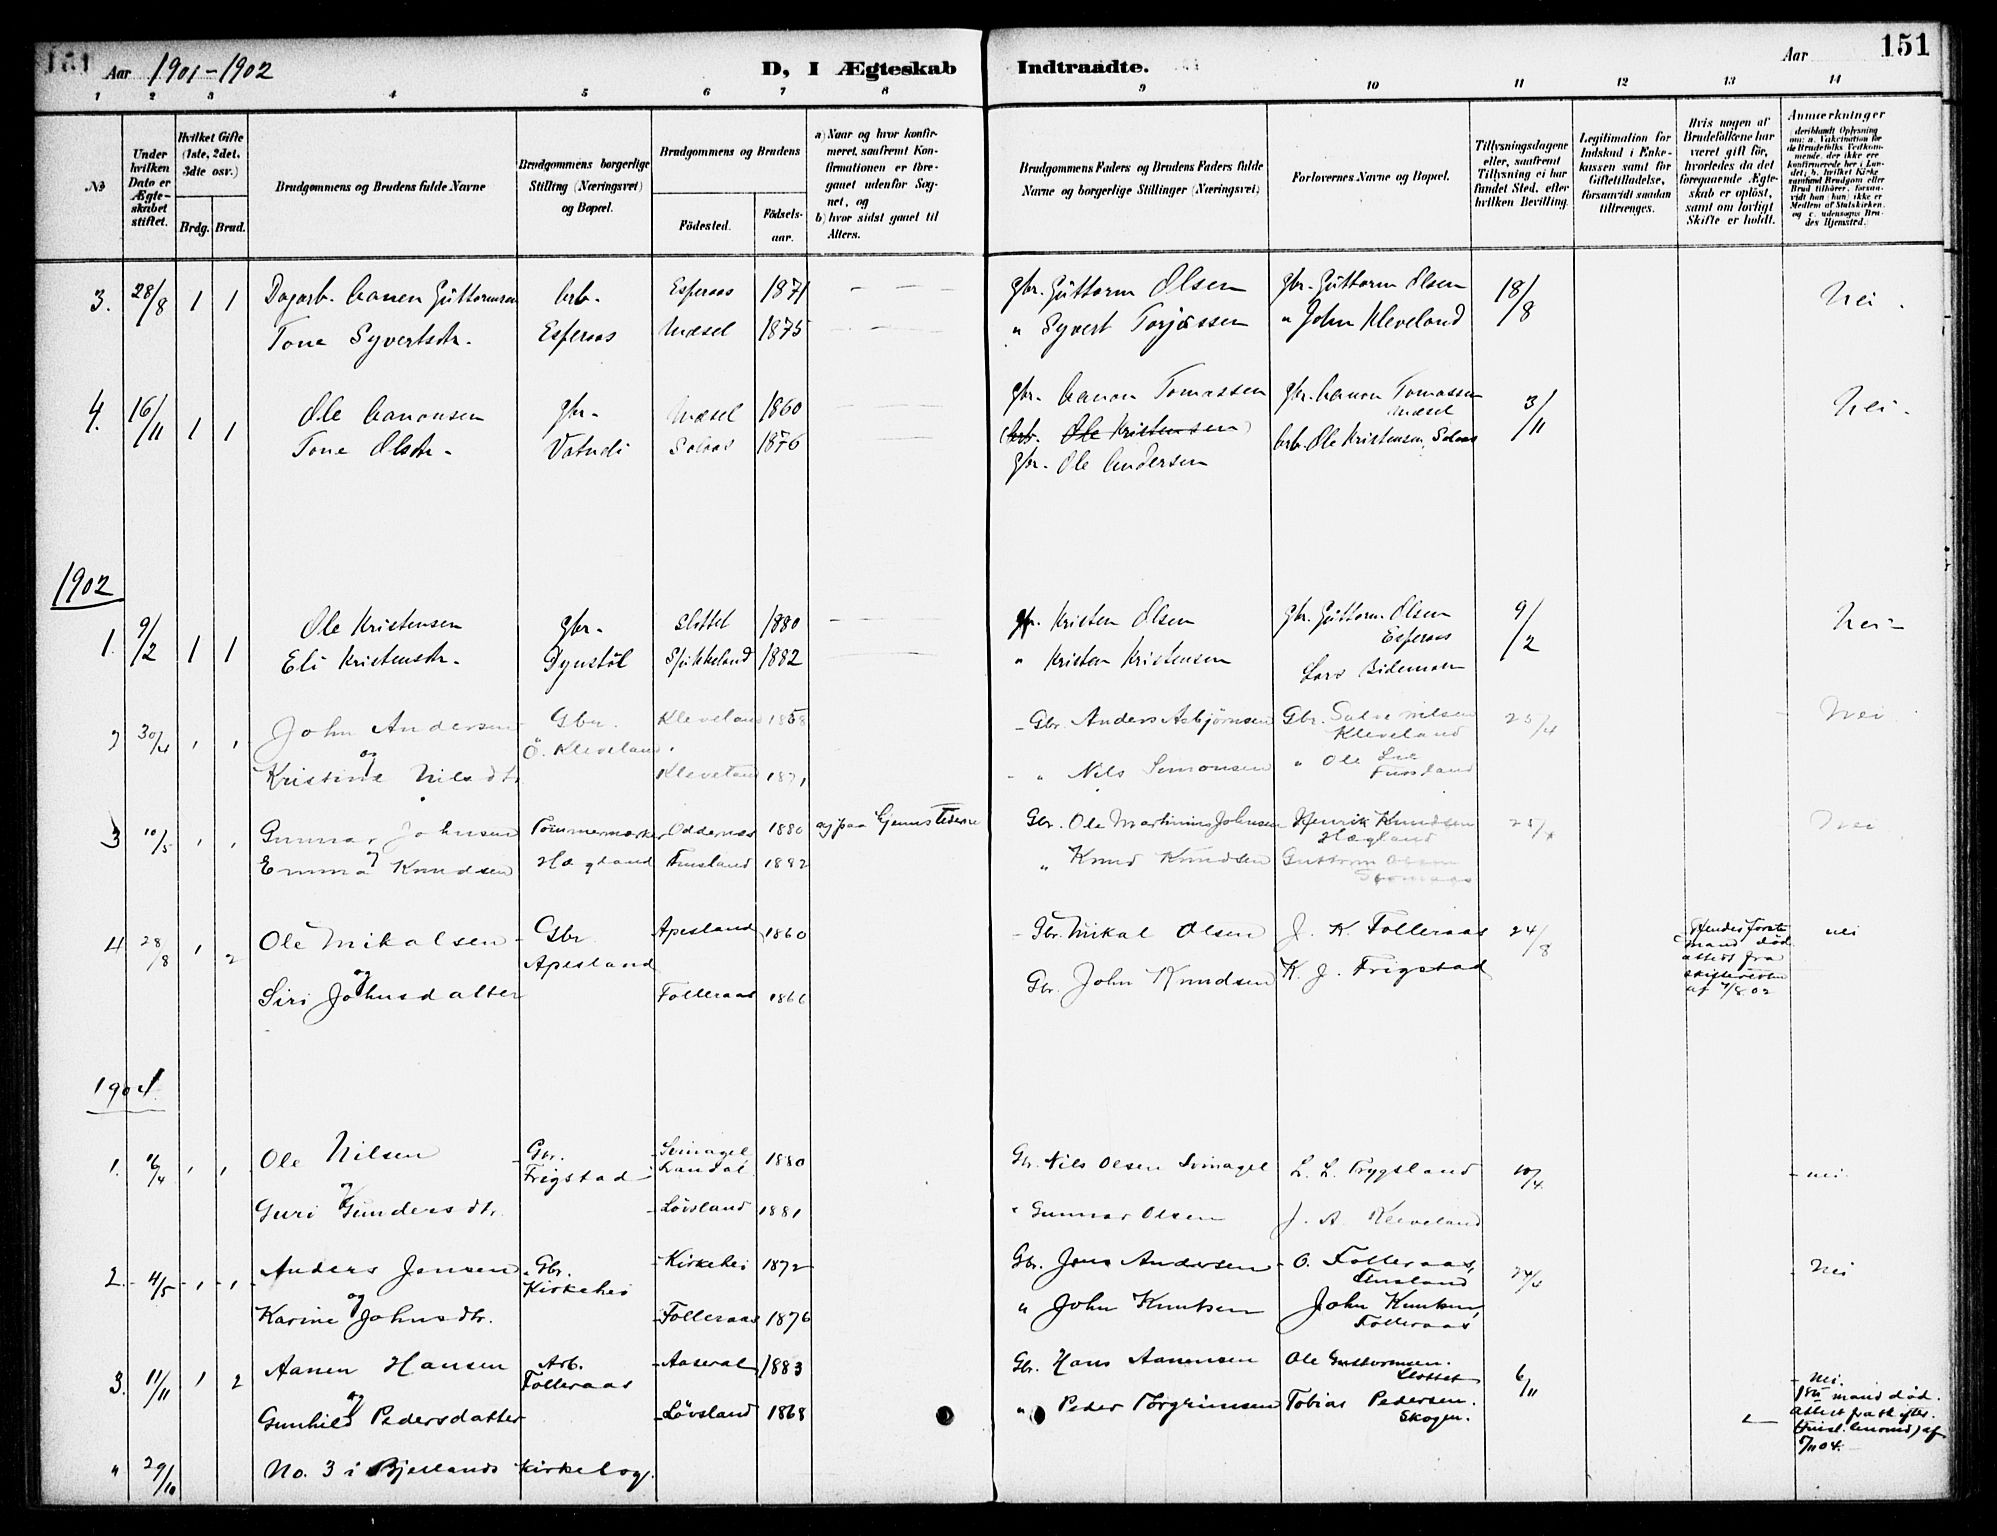 151
Aar 1901-1902
D, I Ægteskab
Indtraadte.
Aar
151
1 2 3 4 5 6 7 8 9 10 11 12 13 14
No
Under hvilken Dato er Ægteskabet stiftet.
Hvilket Gifte (1ste, 2det, 3dte osv.)
Brdg. Brud.
Brudgommens og Brudens fulde Navne
Brudgommens borgerlige Stilling (Næringsvei) og Bopæl.
Brudgommens og Brudens
Födested.
Födselsaar.
a) Naar og hvor konfirmeret, saafremt Konfirmationen er foregaaet udenfor Sognet, og
b) hvor sidst gaaet til Alters.
Brudgommens Faders og Brudens Faders fulde Navne og borgerlige Stillinger (Næringsvei)
Forlovernes Navne og Bopæl.
Tillysningsdagene eller, saafremt Tillysning ei har fundet Sted, efter hvilken Bevilling.
Legitimation for Indskud i Enkekassen samt for Giftetilladelse, forsaavidt saadan tiltrænges.
Hvis nogen af Brudefolkene har været gift før, hvorledes da det foregaaende Ægteskab er opløst, samt om lovligt Skifte er holdt.
Anmærkninger
3. 28/8 1 1 Dagarb. Aanen Guttormsen Arb. Esperaas 1871 gbr. Guttorm Olsen gbr. Guttorm Olsen 18/8 Nei.
Tone Syvertsdtr. Esperaas Mæsel 1875 " Syvert Torjussen " John Kleveland
4. 16/11 1 1 Ole Aanonsen gbr. Mæsel 1860 gbr. Aanon Tomassen gbr. Aanon Tomassen Mæsel 3/11 Nei.
Tone Olsdtr. 1876 (Arb. Ole Kristensen) Arb. Ole Kristensen,
gbr. Ole Andersen
1902
1. 9/2 1 1 Ole Kristensen gbr. Slottet 1880 gbr. Kristen Olsen gbr. Guttorm Olsen Esperaas 9/2 Nei
Eli Kristensdtr. Dynstøl 1882 " Kristen Kristensen Lars
2 30/4 1 1 John Andersen Gbr. Kleveland 1858 Gbr. Anders Asbjørnsen Gbr. Salve Nilsen Kleveland 25/4 Nei
og Ö. Kleveland
Kristine Nilsdtr Kleveland 1871 " Nils Simonsen " Ole Lie Finsland
3 10/5 1 1 Gunnar Johnsen Tømmermarker Oddernes 1880 Gbr. Ole Martinius Johnsen Henrik Knudsen Hægland Nei
Emma Knudsen Hægland Finsland 1882 " Knud Knudsen Guttorm Olsen
4 28/8 1 2 Ole Mikalsen Gbr Apesland 1860 Gbr. Mikal Olsen J. K. Folleraas 24/8 Hendes første mand død attest fra skifteretten af 4/8 02 nei
og Apesland
Siri Johnsdatter Folleraas 1866 Gbr. John Knudsen K. J. Frigstad
1904.
1. 16/4 1 1 Ole Nilsen Gbr. Frigstad Svinagel 1880 Gbr. Nils Olsen Svinagel L. L. Trygsland 10/4 nei
og
Guri Gundersdtr. Løvsland 1881 " Gunnar Olsen J. A. Kleveland
2. 4/5 1 1 Anders Jensen Gbr. Kirkehei Kirkehei 1872 Gbr. Jens Andersen O. Folleraas, Finsland 24/4 Nei
og
Karine Johnsdtr. Folleraas 1876 " John Knutsen John Knutsen, Folleraas
3. 11/11 1 2 Aanen Hansen Arb. Folleraas Aaseral 1883 Gbr. Hans Aanensen Ole Guttormsen. Slottet 6/11 Nei.
og
Gunhild Pedersdatter Løvsland 1868 " Peder Torgrimsen Tobias Pedersen. Skogen. 1ste mand død.
" 29/10 No. 3 i Bjellands Kirkebog.